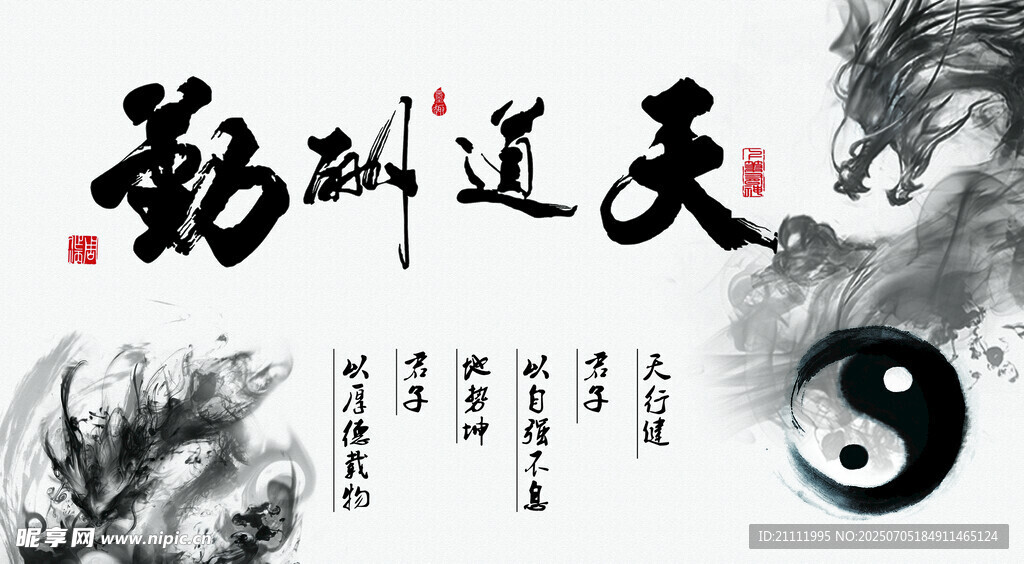 天道酬勤
天行健
君子
以自强不息
地势坤
君子
以厚德载物
昵享网 www.nipic.cn
ID:21111995 NO:20250705184911465124